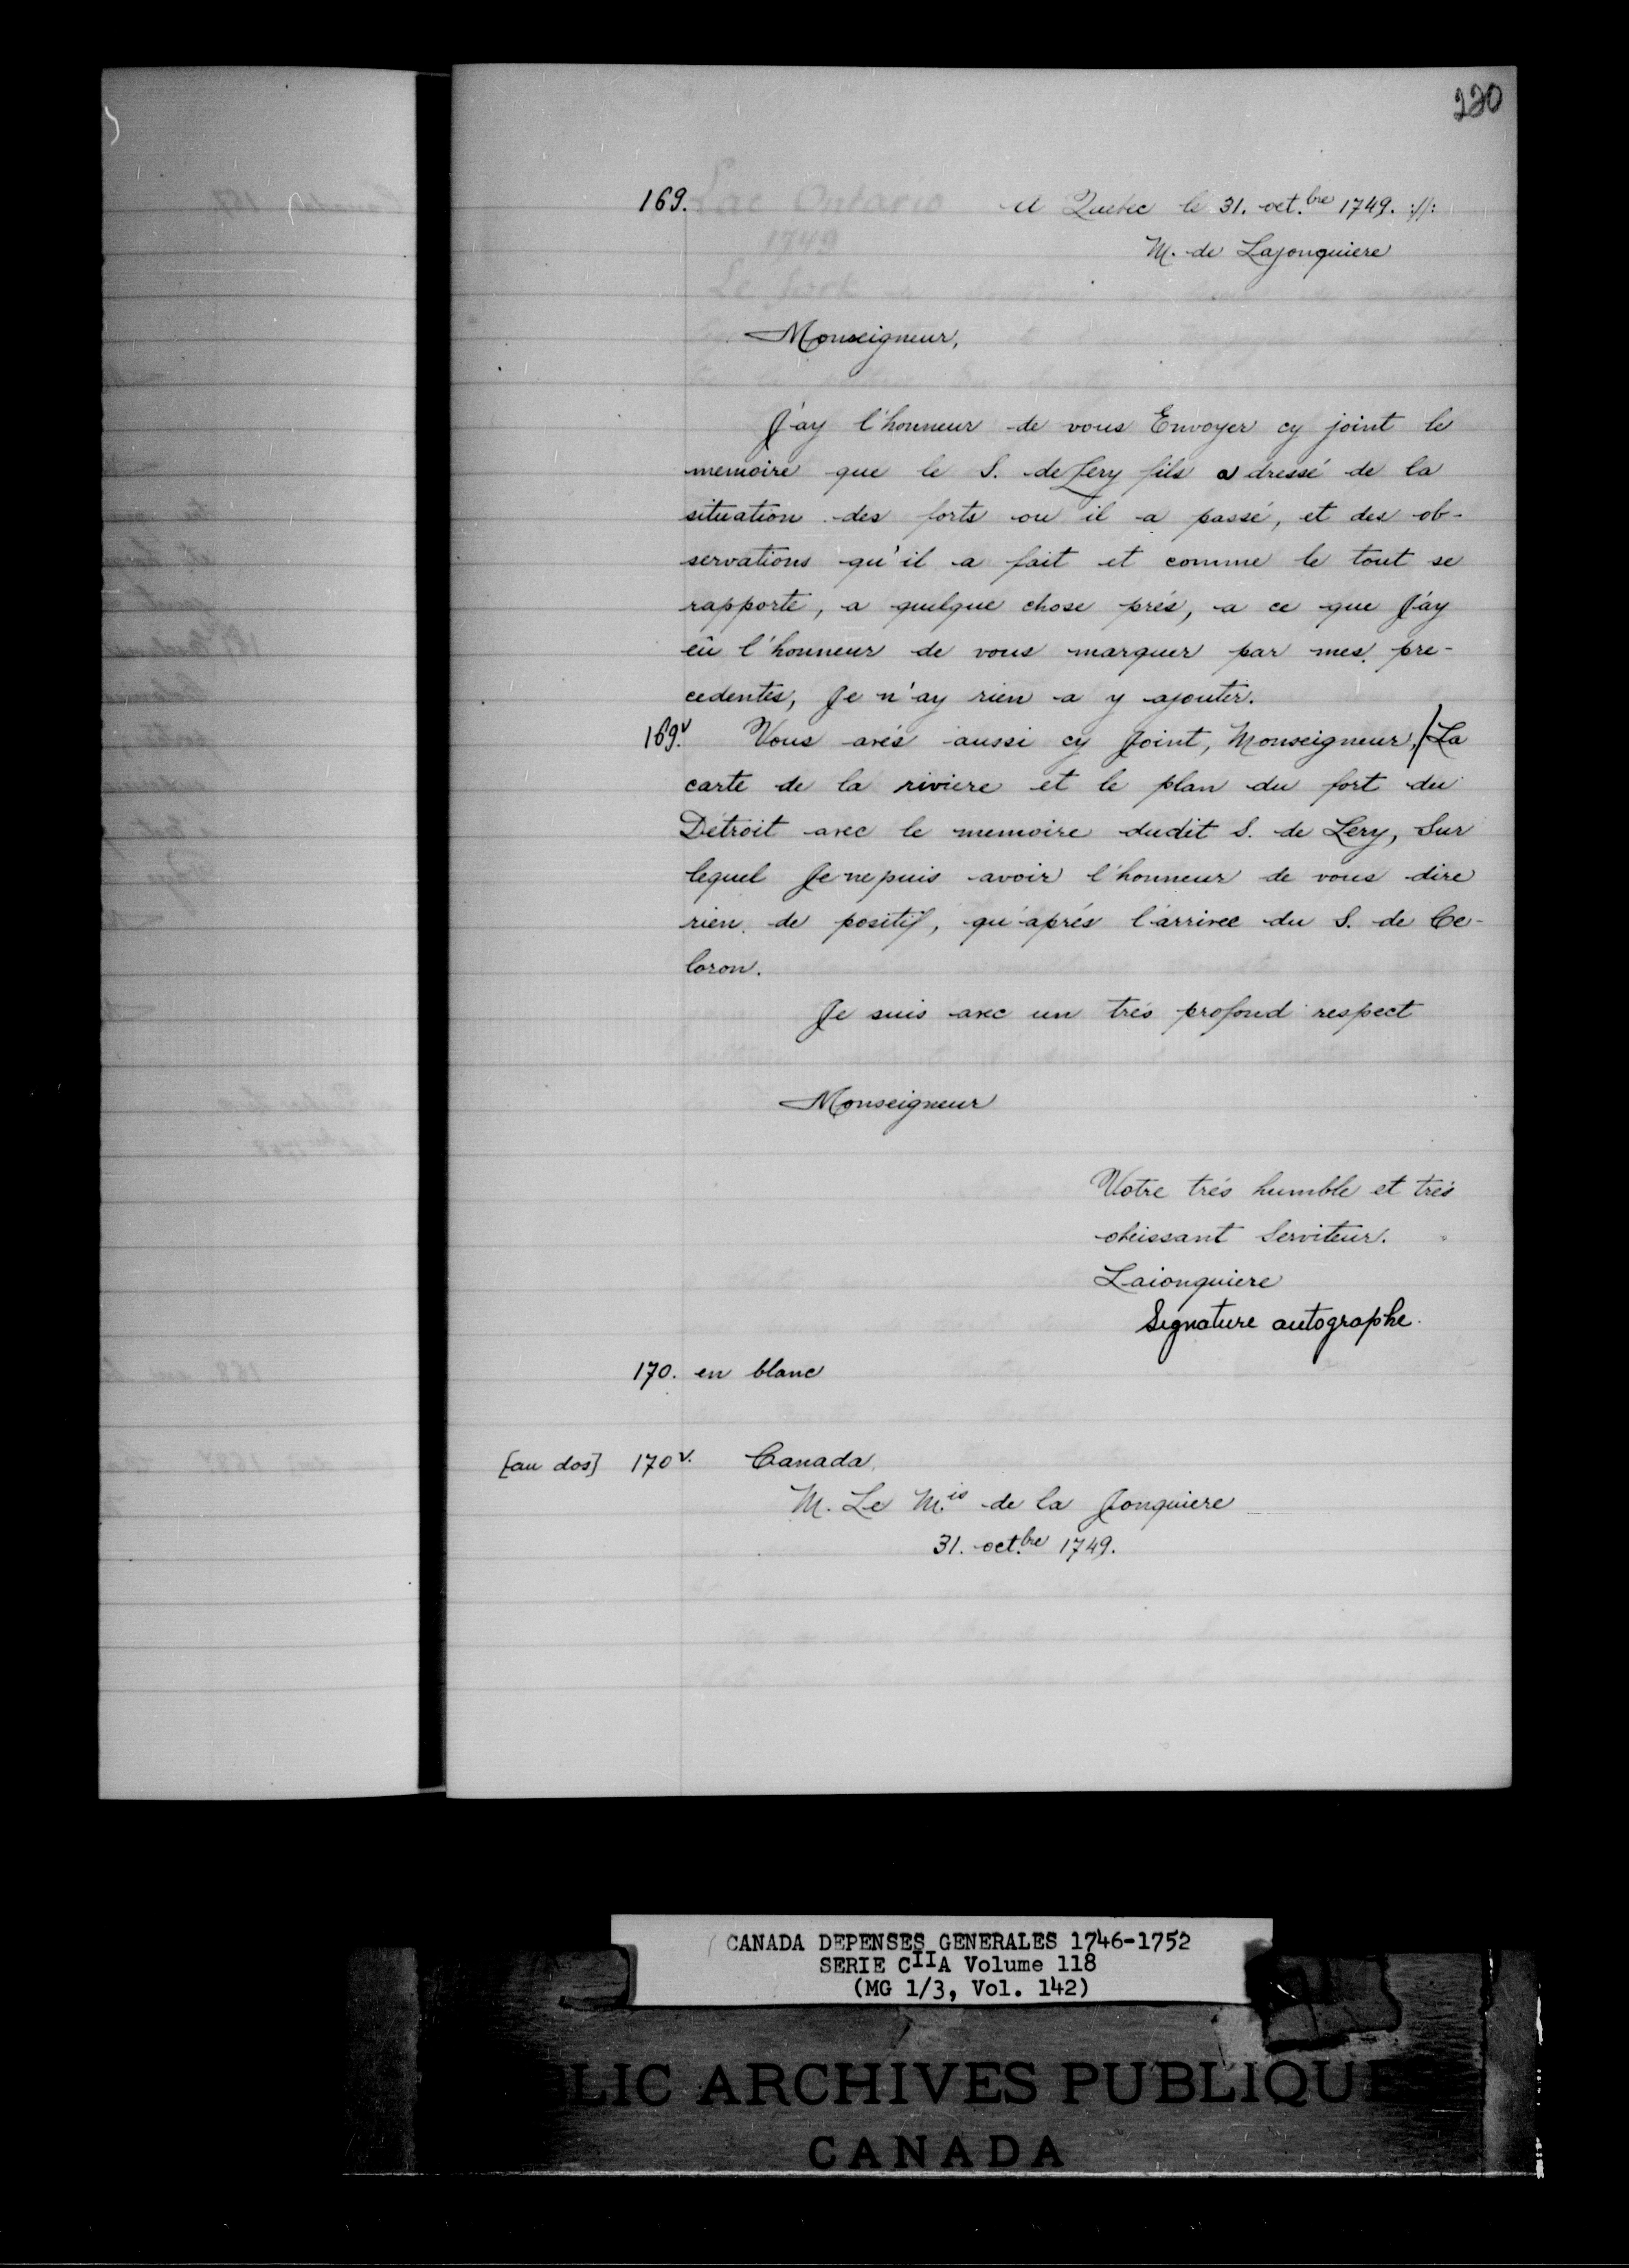 220
169. A Quebec le 31. oct.bre 1749. ://:
M. de Lajonquiere
Monseigneur,
J'ay l'honneur de vous Envoyer cy joint le
memoire que le S. de Lery fils a dressé de la
situation des forts ou il a passé, et des ob-
servations qu'il a fait et comme le tout se
rapporte, a quelque chose prés, a ce que J'ay
eû l'honneur de vous marquer par mes pre-
cedentes, Je n'ay rien a y ajouter.
169v. Vous avés aussi cy Joint, Monseigneur,/La
carte de la riviere et le plan du fort du
Détroit avec le memoire dudit S. de Lery, Sur
lequel Je ne puis avoir l'honneur de vous dire
rien de positif, qu'aprés l'arrivee du S. de Ce-
loron.
Je suis avec un trés profond respect
Monseigneur
Votre trés humble et trés
obeissant Serviteur.
Laionquiere
Signature autographe.
170. en blanc
[au dos] 170v. Canada
M. Le M.is de la Jonquiere
31. oct.bre 1749.
Lac Ontario
1749
Le fort
CANADA DEPENSES GENERALES 1746-1752
SERIE CIIA Volume 118
(MG 1/3, Vol. 142)
LIC ARCHIVES PUBLIQUE
CANADA